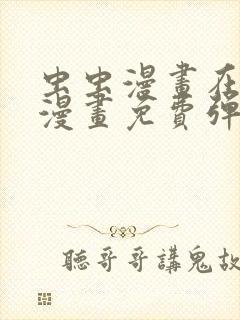 虫虫漫畫在
漫畫免費彈
聽哥哥講鬼故